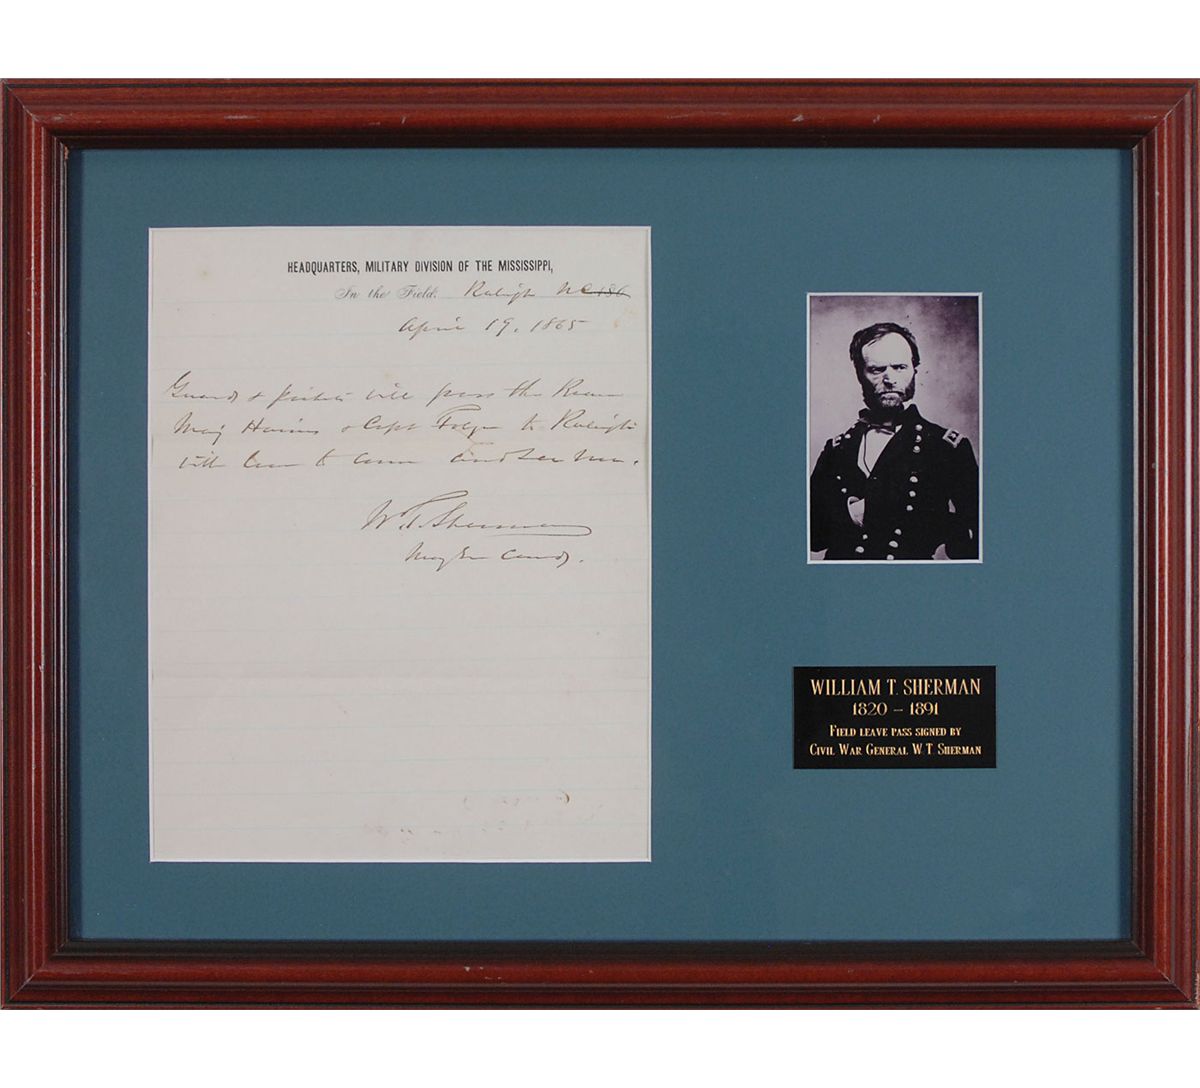 HEADQUARTERS, MILITARY DIVISION OF THE MISSISSIPPI,
In the Field, Raleigh NC 186
April 19, 1865
Guards & pickets will pass the
Maj & Capt to Raleigh
with to
W. T. Sherman
Maj Gen Comdg.
WILLIAM T. SHERMAN
1820 – 1891
FIELD LEAVE PASS SIGNED BY
CIVIL WAR GENERAL W T SHERMAN